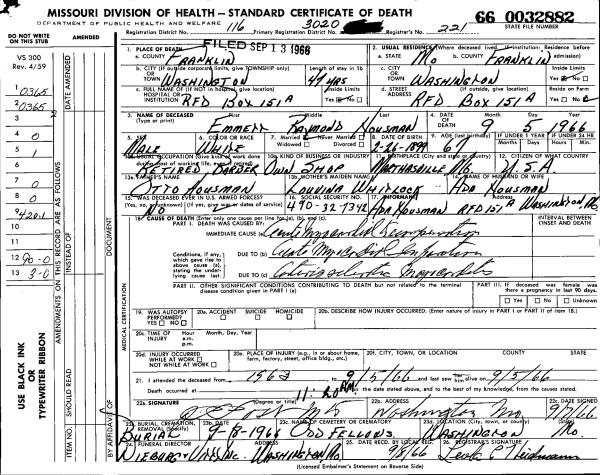 MISSOURI DIVISION OF HEALTH — STANDARD CERTIFICATE OF DEATH
DEPARTMENT OF PUBLIC HEALTH AND WELFARE
66 0032882
STATE FILE NUMBER
Registration District No. 116 Primary Registration District No. 3020 Registrar's No. 221
DO NOT WRITE ON THIS STUB
AMENDED
FILED SEP 13 1966
VS 300
Rev. 4/59
1. PLACE OF DEATH
a. COUNTY Franklin
2. USUAL RESIDENCE (Where deceased lived. If institution: Residence before admission)
a. STATE Mo b. COUNTY Franklin
b. CITY (If outside corporate limits, give TOWNSHIP only) OR TOWN Washington
Length of stay in 1b 49 yrs
c. CITY OR TOWN Washington
Inside Limits Yes No
c. FULL NAME OF (If NOT in hospital, give location) HOSPITAL OR INSTITUTION RFD Box 151A
Inside Limits Yes No
d. STREET ADDRESS (If outside, give location) RFD Box 151A
Reside on Farm Yes No
3. NAME OF DECEASED (Type or print) First Middle Last
Emmett Raymond Housman
4. DATE OF DEATH Month Day Year
9 5 1966
5. SEX Male
6. COLOR OR RACE White
7. Married Never Married Widowed Divorced
8. DATE OF BIRTH 2-26-1899
9. AGE (last birthday) 67
IF UNDER 1 YEAR IF UNDER 24 HR
10a. USUAL OCCUPATION (Give kind of work done during most of working life, even if retired) Retired Barber
10b. KIND OF BUSINESS OR INDUSTRY Own Shop
11. BIRTHPLACE (City and state or country) Marthasville Mo.
12. CITIZEN OF WHAT COUNTRY U.S.A.
13a. FATHER'S NAME Otto Housman
13b. MOTHER'S MAIDEN NAME Louvina Whitlock
14. NAME OF HUSBAND OR WIFE Ada Housman
15. WAS DECEASED EVER IN U.S. ARMED FORCES? (Yes, no, or unknown) (If yes, give war or dates of service) No
16. SOCIAL SECURITY NO. 490-32-7342
17. Ada Housman RFD 151A Washington, Mo
18. CAUSE OF DEATH (Enter only one cause per line for (a), (b), and (c).
PART I. DEATH WAS CAUSED BY:
INTERVAL BETWEEN ONSET AND DEATH
IMMEDIATE CAUSE (a) Acute Myocardial
Conditions, if any, which gave rise to above cause (a), stating the underlying cause last
DUE TO (b) Acute Myocardial
DUE TO (c)
PART II. OTHER SIGNIFICANT CONDITIONS CONTRIBUTING TO DEATH but not related to the terminal disease condition given in PART I (a)
PART III. If deceased was female was there a pregnancy in last 90 days.
Yes No Unknown
19. WAS AUTOPSY PERFORMED? YES NO
20a. ACCIDENT SUICIDE HOMICIDE
20b. DESCRIBE HOW INJURY OCCURRED. (Enter nature of injury in PART I or PART II of item 18.)
20c. TIME OF INJURY Hour a.m. p.m. Month, Day, Year
20d. INJURY OCCURRED WHILE AT WORK NOT WHILE AT WORK
20e. PLACE OF INJURY (e.g., in or about home, farm, factory, street, office bldg., etc.)
20f. CITY, TOWN, OR LOCATION COUNTY STATE
21. I attended the deceased from 1963 to 9/5/66 and last saw alive on 9/5/66
Death occurred at the date stated above, and to the best of my knowledge, from the causes stated.
22a. SIGNATURE (Degree or title)
22b. ADDRESS Washington Mo.
22c. DATE SIGNED 9/7/66
23a. BURIAL, CREMATION, REMOVAL (Specify) Burial
23b. DATE 9-8-1966
23c. NAME OF CEMETERY OR CREMATORY Odd Fellows
Washington Mo.
24. FUNERAL DIRECTOR Nieburg-Vitt Inc. Washington Mo
25. DATE RECD. BY LOCAL REG. 9/8/66
26. REGISTRAR'S SIGNATURE
(Licensed Embalmer's Statement on Reverse Side)
1 0365
2 0365
3
4 0
5 1
6
7 0
8 0
9 4201
10
11
12 90-0
13 3-0
DATE AMENDED
AMENDMENTS ON THIS RECORD ARE AS FOLLOWS
INSTEAD OF
DOCUMENT
MEDICAL CERTIFICATION
SHOULD READ
ITEM NO.
BY AFFIDAVIT OF
USE BLACK INK
OR
TYPEWRITER RIBBON